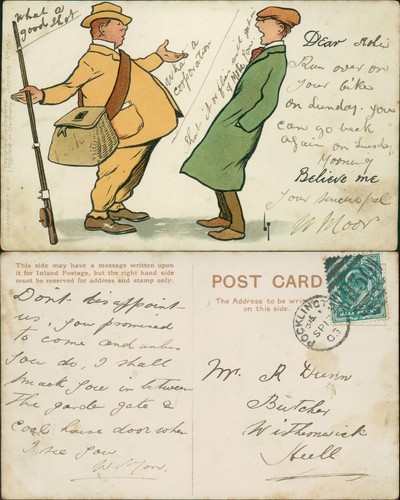 What a
good shot
What a
corporation
Dear
Run over on
your bike
on Sunday. you
can go back
again on
Believe me
your
W Moor
This side may have a message written upon
it for Inland Postage, but the right hand side
must be reserved for address and stamp only.
POST CARD
The Address to be
on this side.
POCKLINGT
SP 1
03
Don't disappoint
us, you promised
to come and
you do, I shall
smack you in between
The garden gate &
coal house door when
I see you
W Moor.
Mr. R Dunn
Butcher
Withernwick
Hull